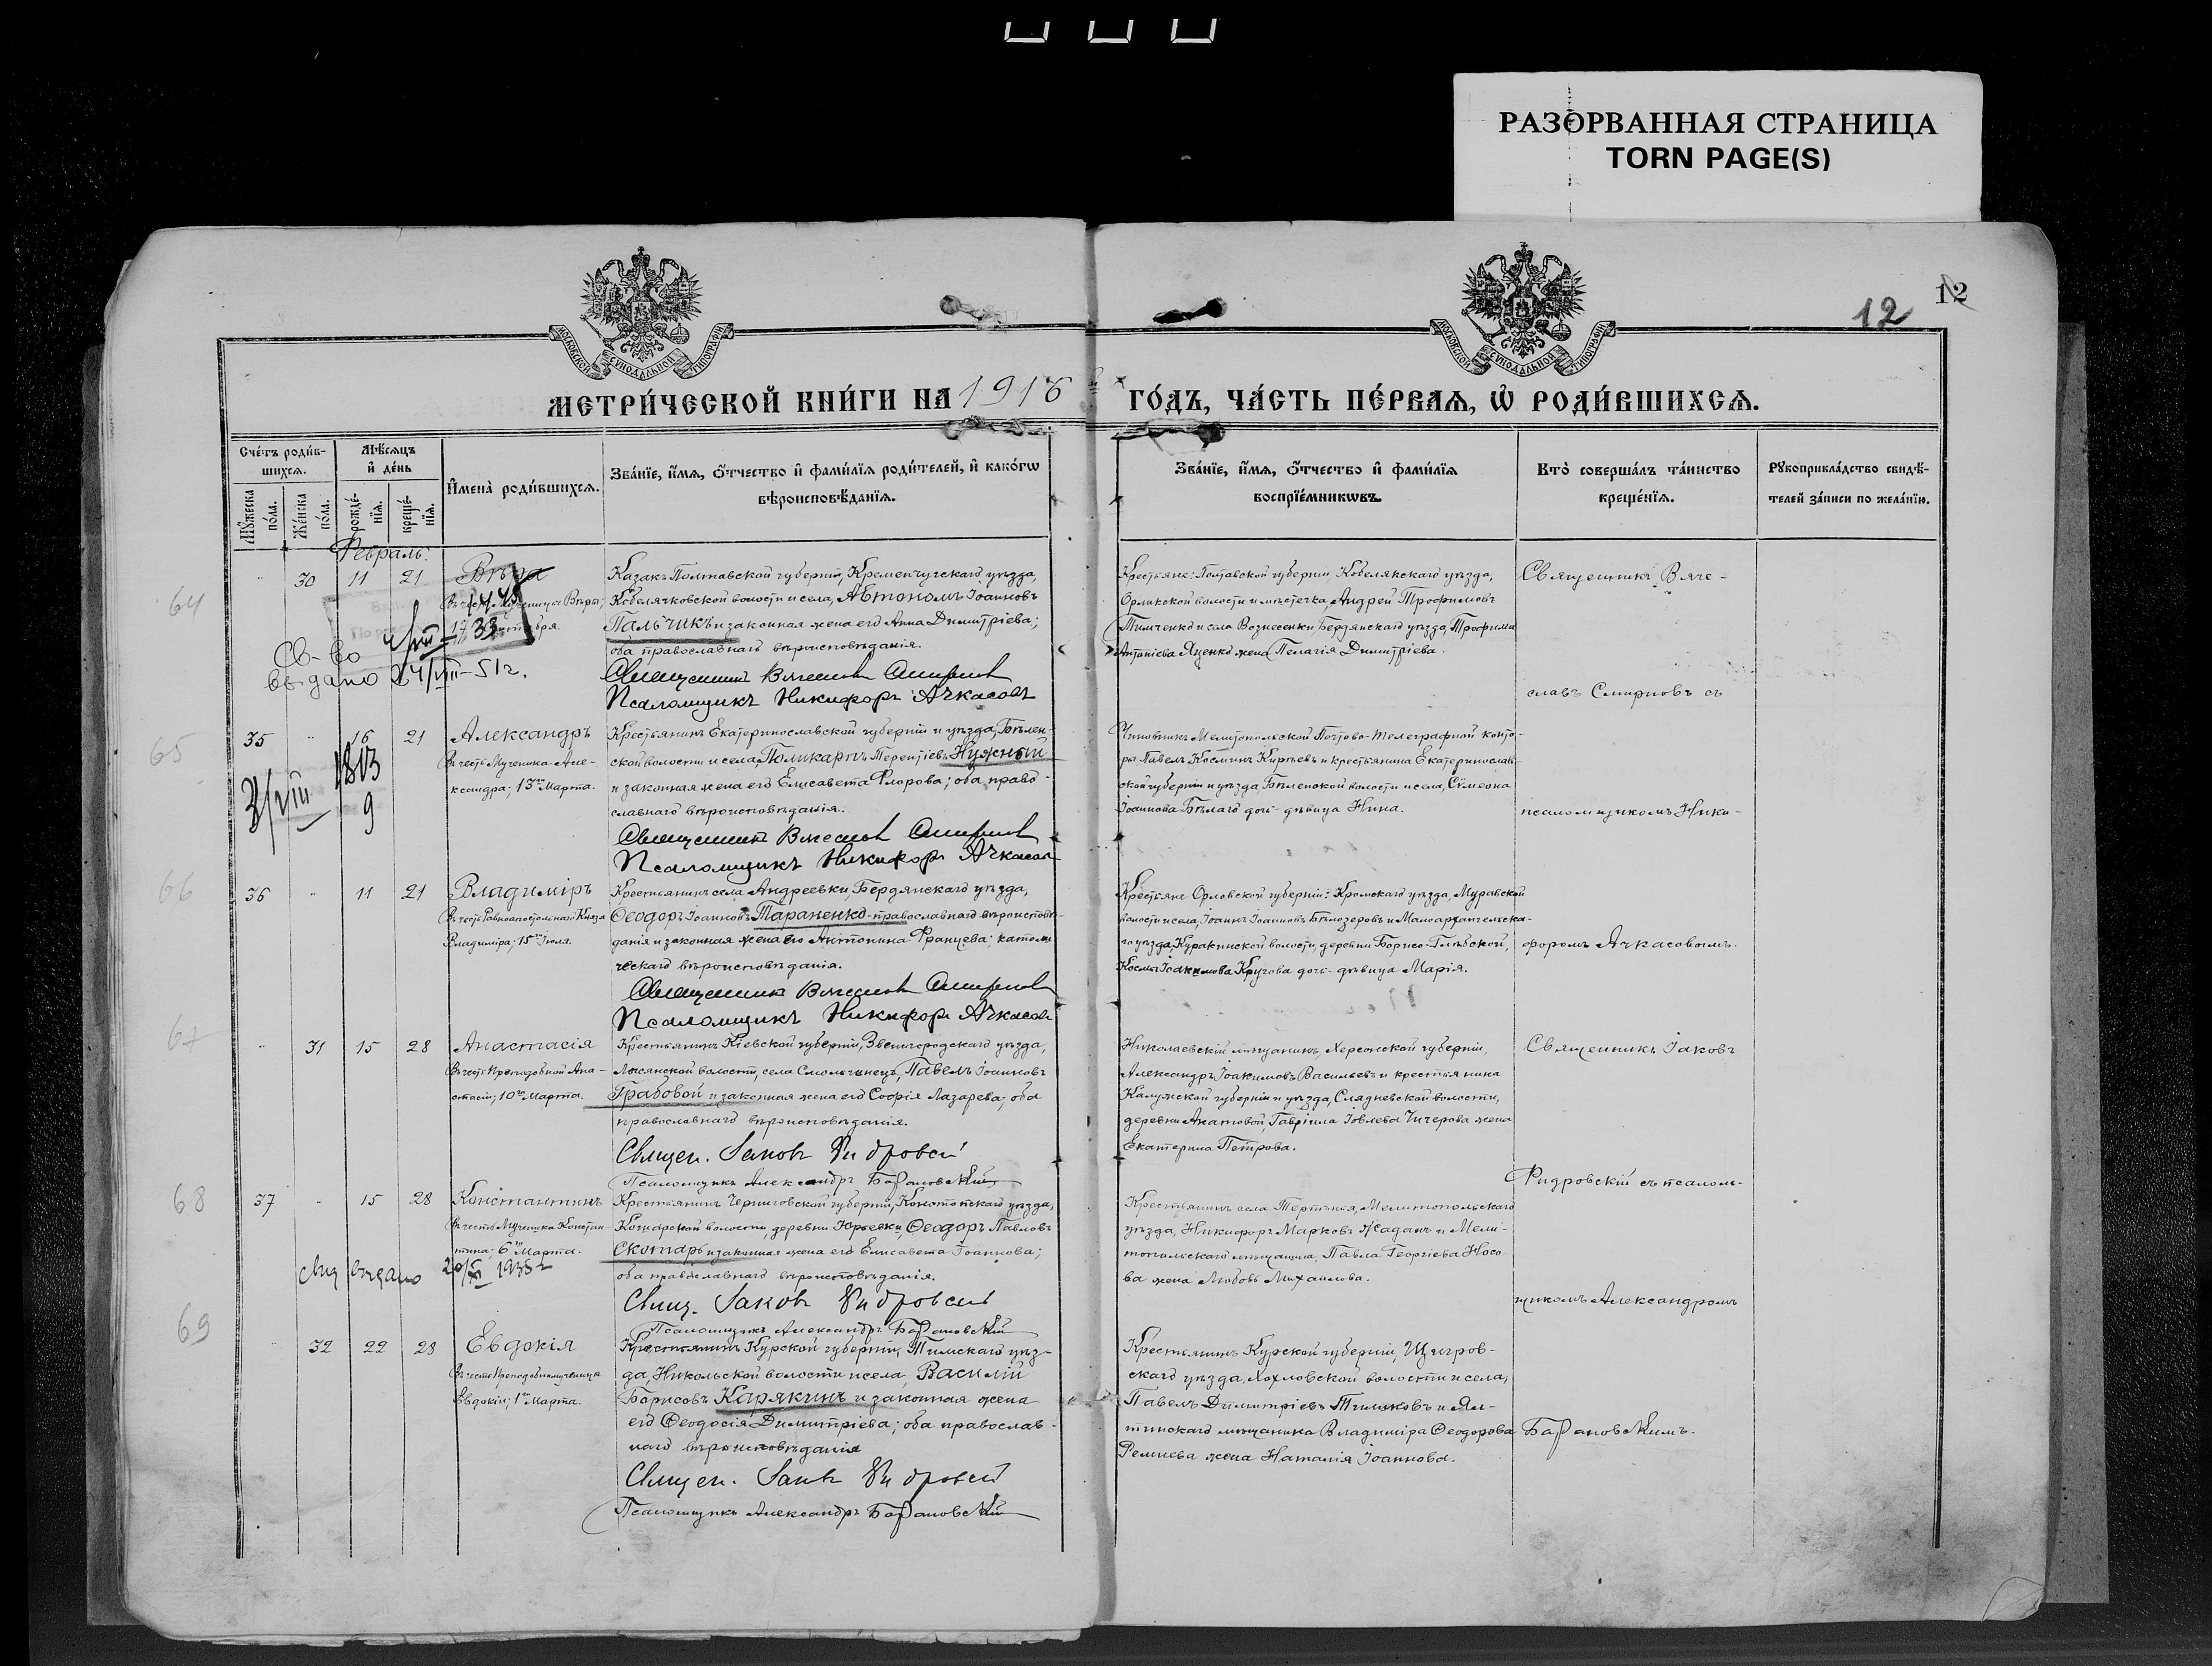 РАЗОРВАННАЯ СТРАНИЦА
TORN PAGE(S)
12
12
МОСКОВСКОЙ СУНОДАЛЬНОЙ ТИПОГРАФІИ
МОСКОВСКОЙ СУНОДАЛЬНОЙ ТИПОГРАФІИ
МЕТРИ́ЧЕСКОЙ КНИ́ГИ НА 1916 ГО́ДЪ, ЧА́СТЬ ПЕ́РВАЯ, Ѡ РОДИ́ВШИХСЯ.
Сче́тъ роди́в-
шихся.
Мѣ́сяцъ
и҆ де́нь
Мꙋ́жеска
по́ла.
Же́нска
по́ла.
рожде́-
нїя.
креще́-
нїя.
И҆мена̀ роди́вшихся.
Зва́нїе, и҆́мя, ѻ҆́тчество и҆ фами́лїя роди́телей, и҆ како́гѡ
вѣроисповѣ́данїя.
Зва́нїе, и҆́мя, ѻ҆́тчество и҆ фами́лїя
воспрїе́мникѡвъ.
Кто̀ соверша́лъ та́инство
креще́нїя.
Рꙋкоприкла́дство свидѣ́-
телей за́писи по жела́нїю.
Февраль.
64
" 30 11 21 Вѣра
Въ честь Мученицы Вѣры;
17 Сентября.
Св-во
выдано 24/VIII-51г.
Казакъ Полтавской губерніи, Кременчугскаго уѣзда,
Кобелячковской волости и села, Автономъ Іоанновъ
Пальчикъ и законная жена его Анна Димитріева;
оба православнаго вѣроисповѣданія.
Священникъ Вячеславъ Смирновъ
Псаломщикъ Никифоръ Ачкасовъ
Крестьяне: Полтавской губерніи, Кобелякскаго уѣзда,
Орликской волости и мѣстечка, Андрей Трофимовъ
Тимченко и села Вознесенки, Бердянскаго уѣзда, Трофима
Антоніева Яценко жена Пелагія Димитріева.
Священникъ Вяче-
славъ Смирновъ съ
65
35 " 16 21 Александръ
Въ честь Мученика Але-
ксандра; 13го Марта.
3/VIII
1813
9
Крестьянинъ Екатеринославской губерніи и уѣзда, Бѣлен-
ской волости и села Поликарпъ Терентіевъ Нужный
и законная жена его Елисавета Флорова; оба право-
славнаго вѣроисповѣданія.
Священникъ Вячеславъ Смирновъ
Псаломщикъ Никифоръ Ачкасовъ
Чиновникъ Мелитопольской Почтово-Телеграфной конто-
ры Павелъ Косминъ Кирѣевъ и крестьянина Екатеринослав-
ской губерніи и уѣзда Бѣленской волости и села, Сѵмеона
Іоаннова Бѣлаго дочь-дѣвица Нина.
псаломщикомъ Ники-
66
36 " 11 21 Владиміръ
Въ честь Равноапостольнаго Князя
Владиміра; 15го Іюля.
Крестьянинъ села Андреевки, Бердянскаго уѣзда,
Ѳеодоръ Іоанновъ Тараненко-православнаго вѣроисповѣ-
данія и законная жена его Антонина Францева; католи-
ческаго вѣроисповѣданія.
Священникъ Вячеславъ Смирновъ
Псаломщикъ Никифоръ Ачкасовъ
Крестьяне Орловской губерніи: Кромскаго уѣзда, Муравской
волости и села, Іоаннъ Іоанновъ Бѣлозеровъ и Малоархангельска-
го уѣзда, Куракинской волости, деревни Борисо-Глѣбской,
Космы Іоакимова Кругова дочь-дѣвица Марія.
форомъ Ачкасовымъ.
67
" 31 15 28 Анастасія
Въ честь Преподобной Ана-
стасіи; 10го Марта.
Крестьянинъ Кіевской губерніи, Звенигородскаго уѣзда,
Лысянской волости, села Смольчинецъ, Павелъ Іоанновъ
Грабовой и законная жена его Софія Лазарева; оба
православнаго вѣроисповѣданія.
Священ. Іаковъ Фидровскій
Псаломщикъ Александръ Барановскій
Николаевскій мѣщанинъ, Херсонской губерніи,
Александръ Іоакимовъ Васильевъ и крестьянина
Калужской губерніи и уѣзда, Слядневской волости,
деревни Акатовой, Гавріила Іовлева Чичерова жена
Екатерина Петрова.
Священникъ Іаковъ
Фидровскій съ псалом-
68
37 " 15 28 Константинъ
Въ честь Мученика Констан-
тина; 6го Марта.
Свид выдано
Крестьянинъ Черниговской губерніи, Конотопскаго уѣзда,
Кошарской волости, деревни Юрьевки, Ѳеодоръ Павловъ
Скотарь и законная жена его Елисавета Іоаннова;
оба православнаго вѣроисповѣданія.
Свящ. Іаковъ Фидровскій
Псаломщикъ Александръ Барановскій
Крестьянинъ села Терпѣнія, Мелитопольскаго
уѣзда, Никифоръ Марковъ Жаданъ и Мели-
топольскаго мѣщанина, Павла Георгіева Носо-
ва жена Любовь Михаилова.
щикомъ Александромъ
69
" 32 22 28 Евдокія
Въ честь Преподобномученицы
Евдокіи; 1го Марта.
Крестьянинъ Курской губерніи, Тимскаго уѣз-
да, Никольской волости и села, Василій
Борисовъ Карякинъ и законная жена
его Ѳеодосія Димитріева; оба православ-
наго вѣроисповѣданія
Священ. Іаковъ Фидровскій
Псаломщикъ Александръ Барановскій
Крестьянинъ Курской губерніи, Щигров-
скаго уѣзда, Хохловской волости и села,
Павелъ Димитріевъ Тимоховъ и Ял-
тинскаго мѣщанина Владиміра Ѳеодорова
Ремнева жена Наталія Іоаннова.
Барановскимъ.